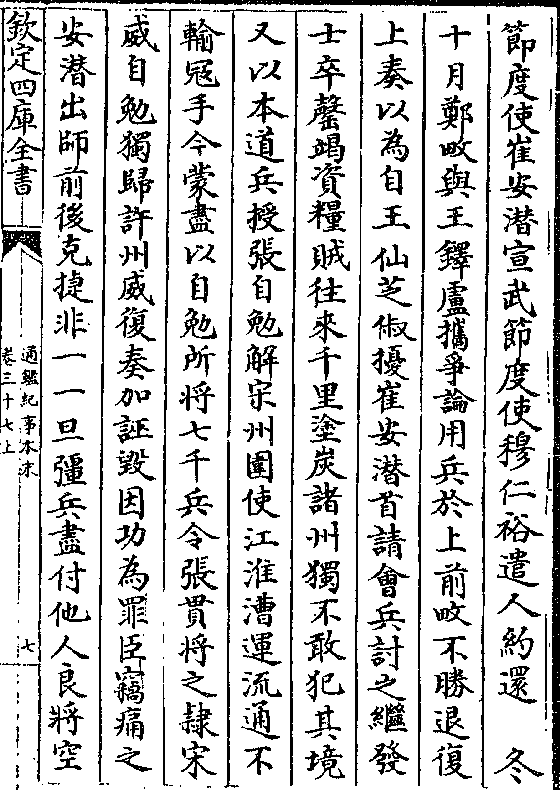 節度使崔安潜宣武節度使穆仁裕遣人約還　冬
十月鄭畋與王鐸盧攜爭論用兵於上前畋不勝退復
上奏以為自王仙芝俶擾崔安潜首請會兵討之繼發
士卒罄竭資糧賊往來千里塗炭諸州獨不敢犯其境
又以本道兵授張自勉解宋州圍使江淮漕運流通不
輸寇手今蒙盡以自勉所將七千兵令張貫將之隸宋
威自勉獨歸許州威復奏加誣毀因功為罪臣竊痛之
安潜出師前後克捷非一一旦彊兵盡付他人良將空
欽定四庫全書
通鑑紀事本末
卷三十七上
七